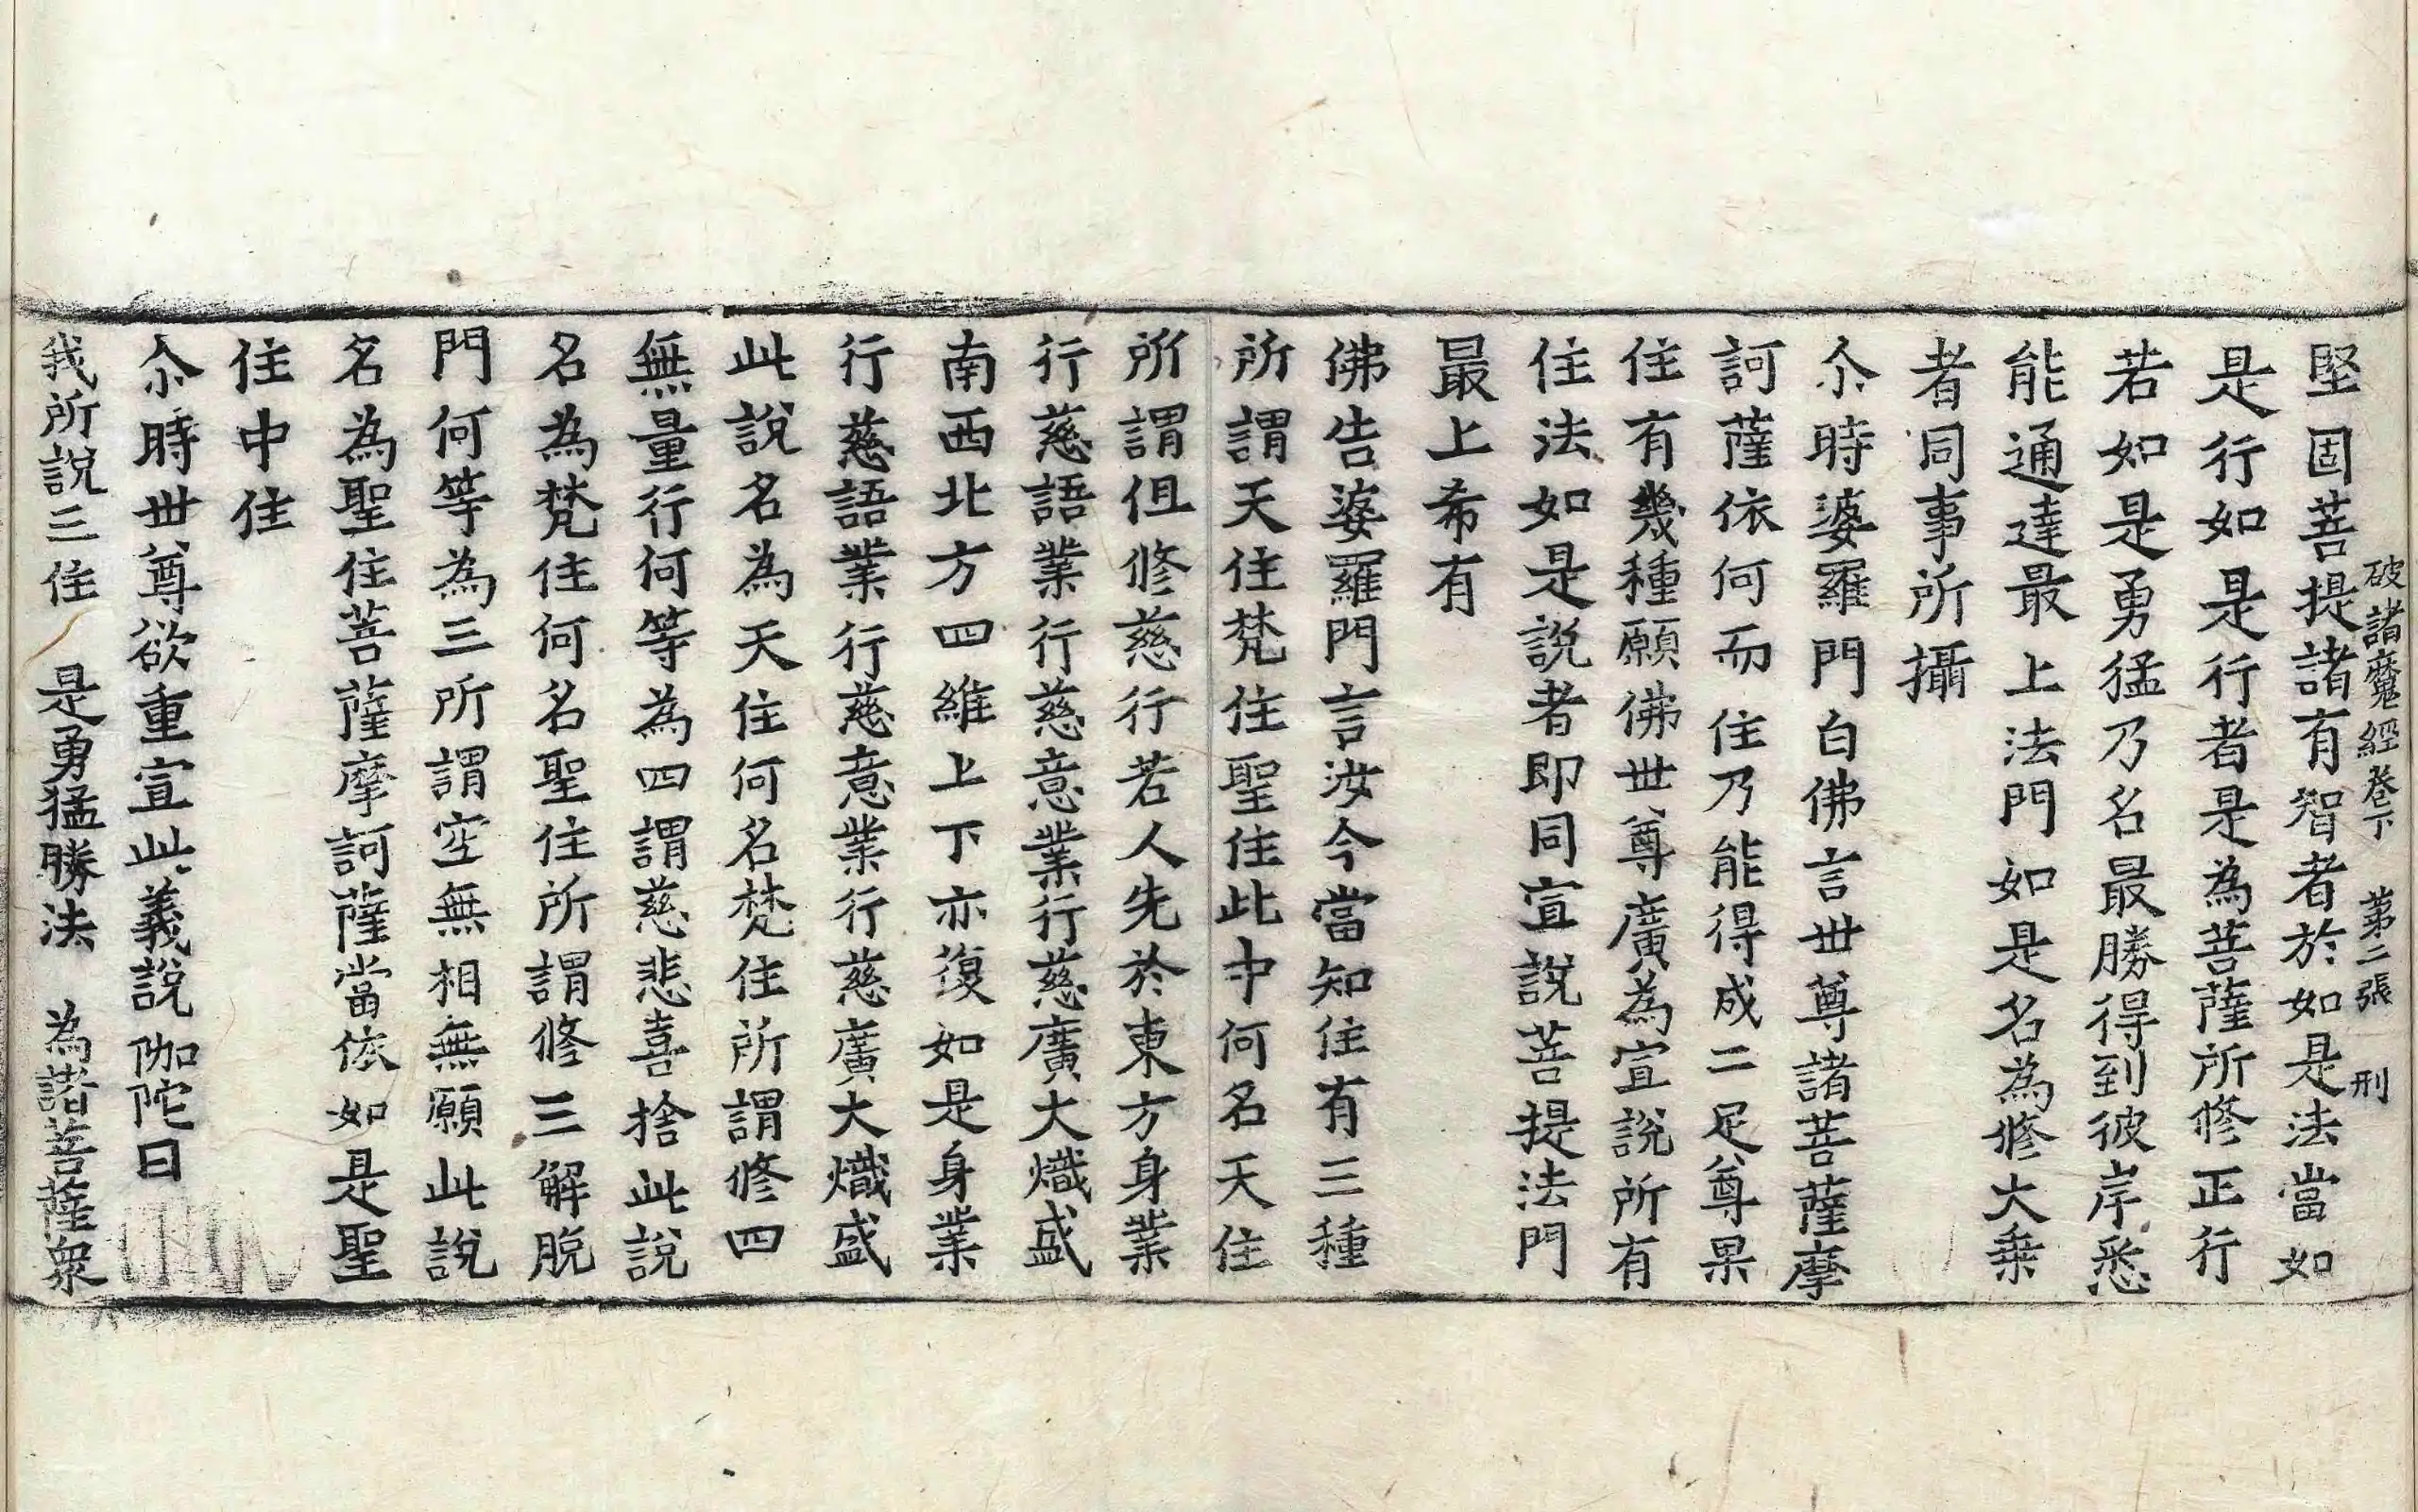 破諸魔經卷下 第二張 刑
堅固菩提諸有智者於如是法當如
是行如是行者是為菩薩所修正行
若如是勇猛乃名最勝得到彼岸悉
能通達最上法門如是名為修大乗
者同事所攝
尒時婆羅門白佛言世尊諸菩薩摩
訶薩依何而住乃能得成二足尊果
住有幾種願佛世尊廣為宣說所有
住法如是說者即同宣說菩提法門
最上希有
佛告婆羅門言汝今當知住有三種
所謂天住梵住聖住此中何名天住
所謂但修慈行若人先於東方身業
行慈語業行慈意業行慈廣大熾盛
南西北方四維上下亦復如是身業
行慈語業行慈意業行慈廣大熾盛
此說名為天住何名梵住所謂修四
無量行何等為四謂慈悲喜捨此說
名為梵住何名聖住所謂修三解脫
門何等為三所謂空無相無願此說
名為聖住菩薩摩訶薩當依如是聖
住中住
尒時世尊欲重宣此義說伽陀曰
我所說三住 是勇猛勝法 為諸菩薩衆